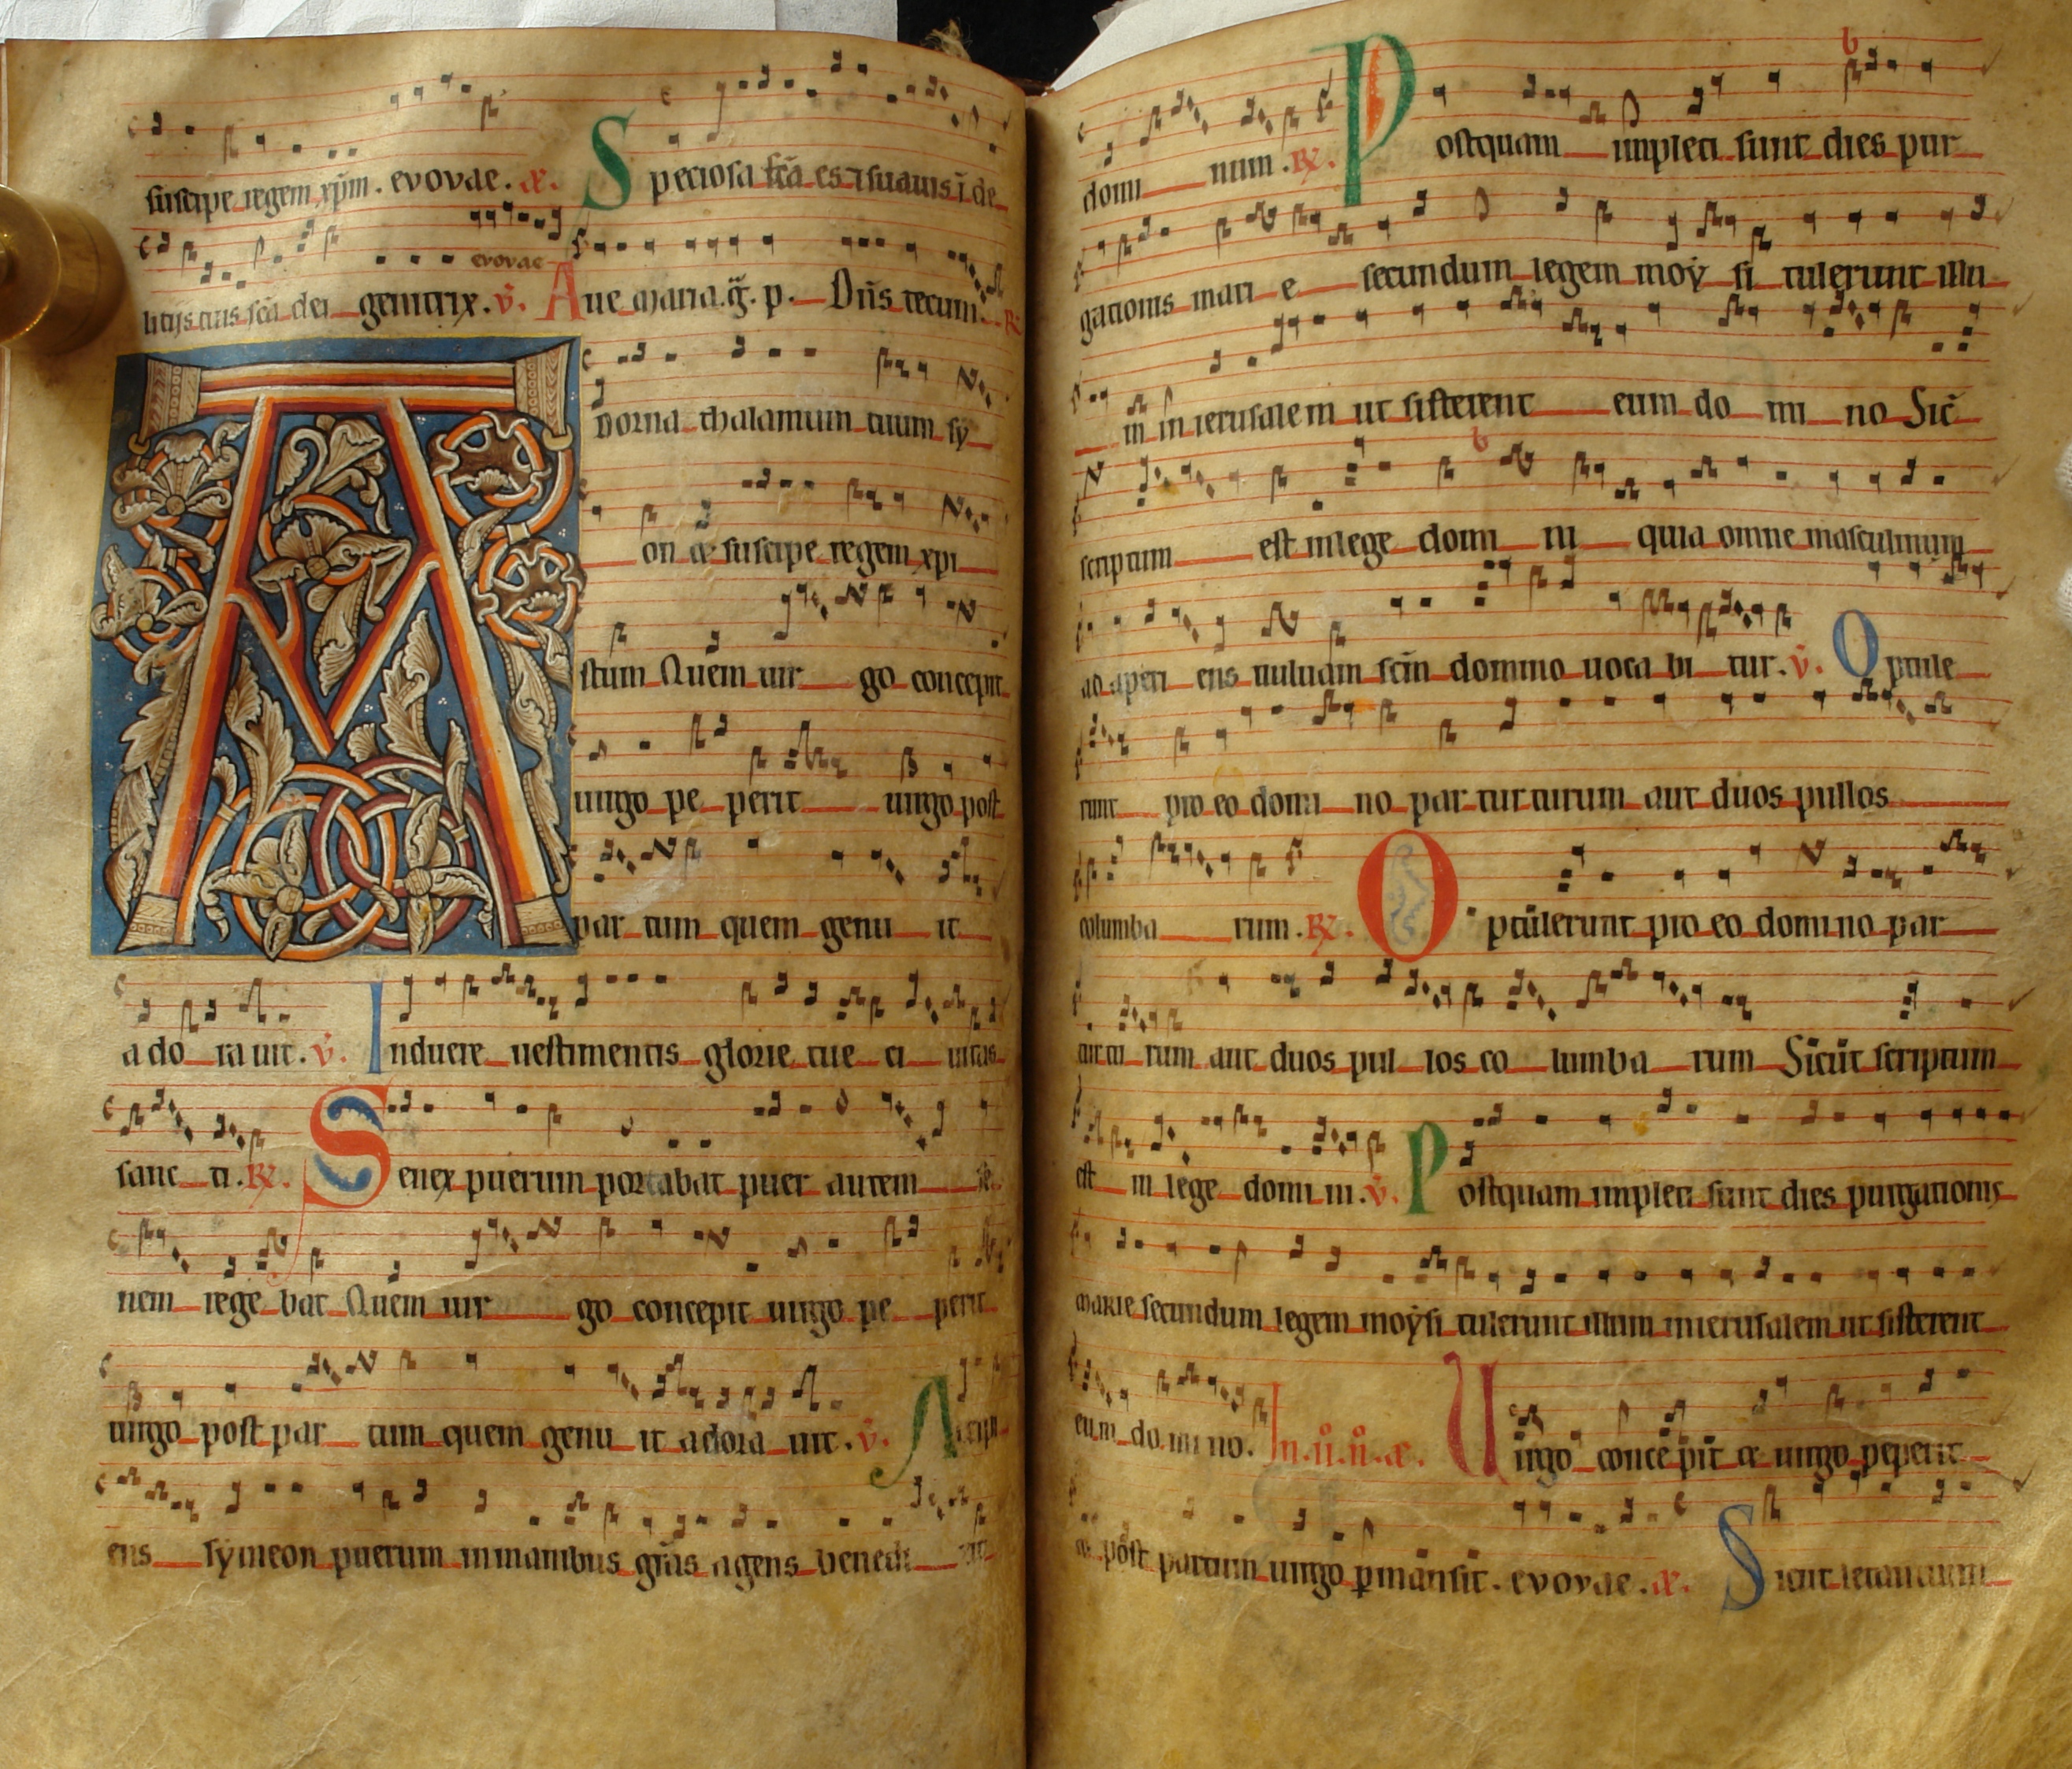 suscipe regem xp̄m. evovae. æ. Speciosa fc̄a es ⁊ suauis ī de
evovae
litijs tuis sc̄a dei genitrix. v̄. Aue maria. g̃. p. Dn̄s tecum. R
Adorna thalamum tuum sy
on & suscipe regem xpi
stum Quem uir go concepit
uirgo pe perit uirgo post
par tum quem genu it
ado ra uit. v̄. Induere uestimentis glorie tue ci uitas
sanc ti. R. Senex puerum portabat puer autem se
nem rege bat Quem uir go concepit uirgo pe perit
uirgo post par tum quem genu it adora uit. v̄. Accipi
ens symeon puerum in manibus gr̄as agens benedi
domi num. R. Postquam impleti sunt dies pur
gationis mari e secundum legem moy si tulerunt illu
m in ierusalem ut sisterent eum do mi no Sic̄
scriptum est in lege domi ni quia omne masculinum
adaperi ens uuluam sc̄m domino uoca bi tur. v̄. Optule
runt pro eo domi no par turturum aut duos pullos
columba rum. R. Optulerunt pro eo domino par
turtu rum aut duos pul los co lumba rum Sicut scriptum
est in lege domi ni. v̄. Postquam impleti sunt dies purgationis
marie secundum legem moysi tulerunt illum in ierusalem ut sisterent
eum domino. In. ii. ii. æ. Uirgo concepit & uirgo peperit
& post partum uirgo ꝑmansit. evovae. æ. Sicut letantium